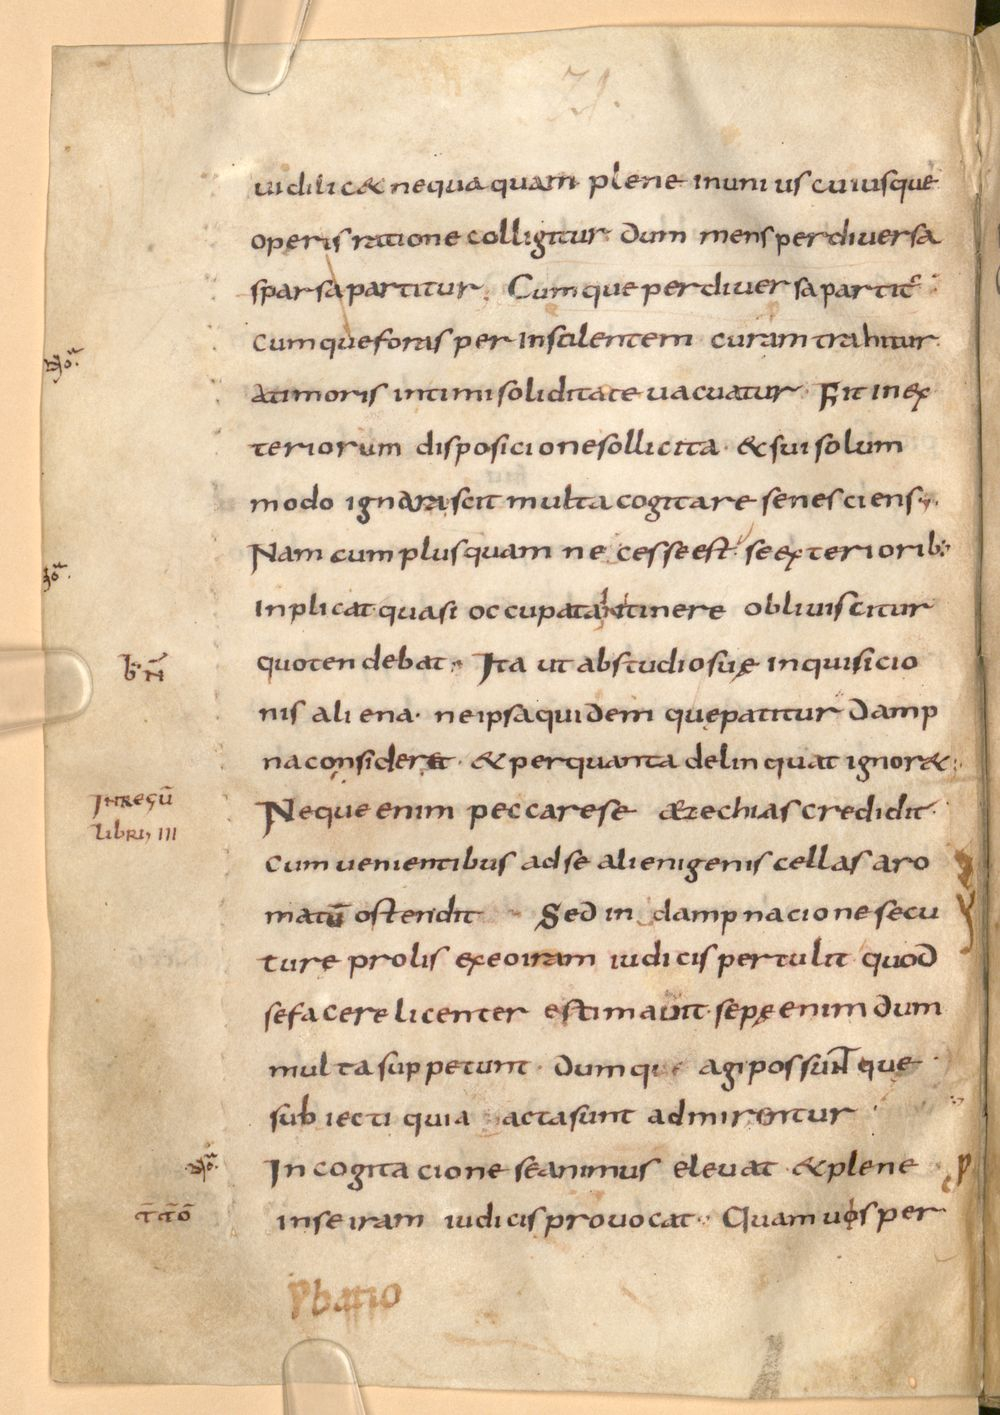 71.
uidilic& nequaquam plene inunius cuiusque
operis ratione colligitur dum mens per diuersa
sparsa partitur. Cumque per diuersa partit᷑
cumque foras per insolentem curam trahitur.
a timoris intimi soliditate uacuatur. Fit in ex
teriorum disposicione sollicita. & sui solum
modo ignara. scit multa cogitare se nesciens.
Nam cum plusquam necesse est. se exteriorib;
inplicat. quasi occupata in itinere obliuiscitur
quo tendebat. Ita ut ab studio suę inquisicio
nis aliena. ne ipsa quidem quę patitur damp
na consideret. & per quanta delinquat ignor&
Neque enim peccare se æzechias credidit.
cum uenientibus ad se alienigenis cellas aro
matū ostendit. Sed in dampnacione secu
ture prolis ex eo iram iudicis pertulit. quod
se facere licenter estimauit. sepę enim dum
multa suppetunt. dumque agi possunt que
subiecti quia acta sunt admirentur
In cogitacione se animus eleuat. & plene
in se iram iudicis prouocat. Quamuos per
IN REGŪ
LIBRI III